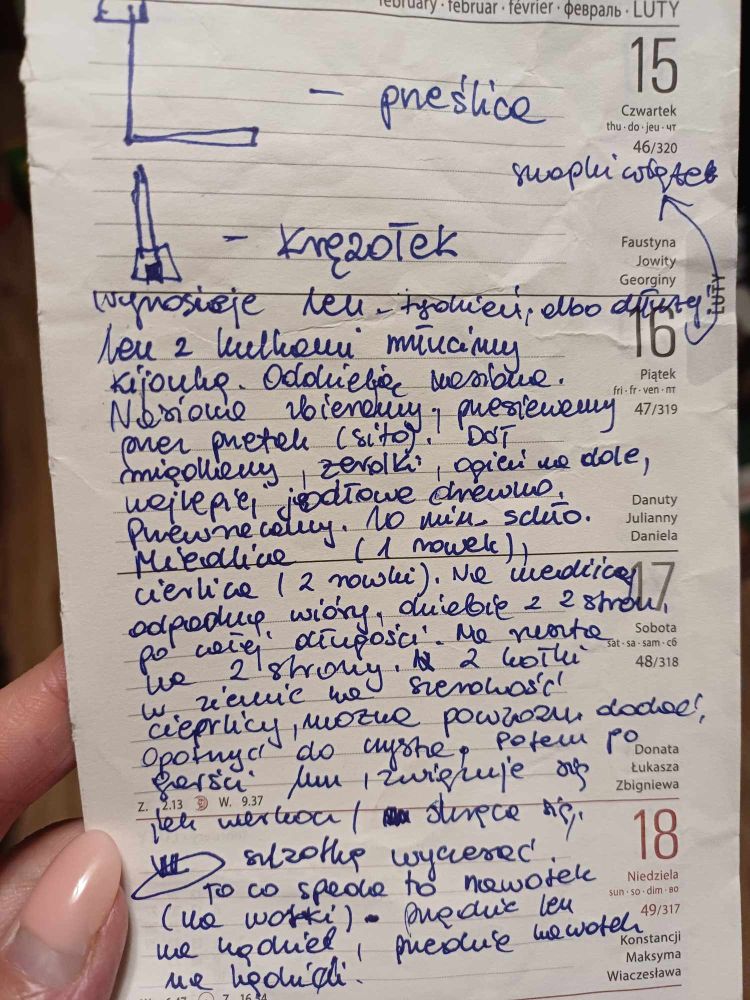 february · februar · février · февраль · LUTY
15
Czwartek
thu · do · jeu · чт
46/320
– prześlica
snopki wiąże
Faustyna
Jowity
Georginy
– krężołek
LUTY
Wynosi się len – tydzień, albo dłużej
16
len z kulkami młócimy
Piątek
kijonką. Oddzielają nasiona.
fri · fr · ven · пт
Nasiona zbieramy, przesiewamy
47/319
przez przetak (sito). Dół
, żarołki, ogień na dole,
najlepiej jodłowe drewno.
Danuty
Przewracamy. 10 min. schło.
Julianny
Daniela
Miedlica (1 rowek),
cierlica (2 rowki). Na miedlicy
17
odpadną wióry, dziebie z 2 stron,
Sobota
po całej długości. Na
sat · sa · sam · сб
na 2 strony. 2 kołki
48/318
w ziemię na szerokość
cierlicy, można dodać,
Opatrzyć do czysta, potem po
Donata
garści lnu, związuje się
Łukasza
Zbigniewa
Z. 2.13 W. 9.37
jak warkocz / skręca się,
18
szczotką wyczesać.
Niedziela
To co spada to pawołek
sun · so · dim · во
(na worki) – przędzie len
49/317
na kądziel, przednie pawołek
Konstancji
na kądzieli.
Maksyma
Wiaczesława